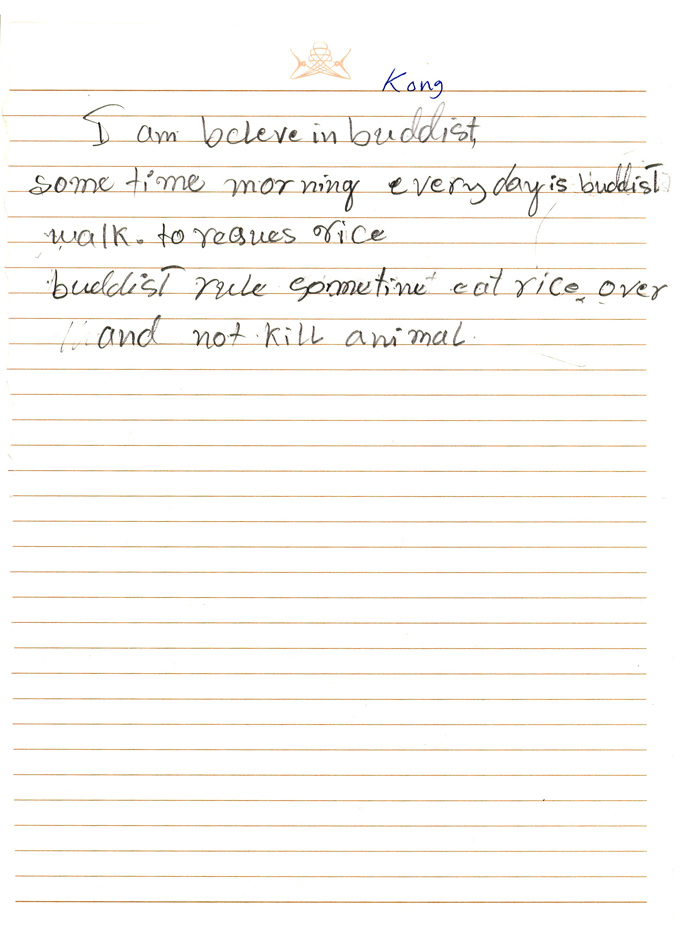 Kong
I am beleve in buddist,
some time morning every day is buddist
walk. to reques rice
buddist rule sometime eat rice over
and not kill animal.